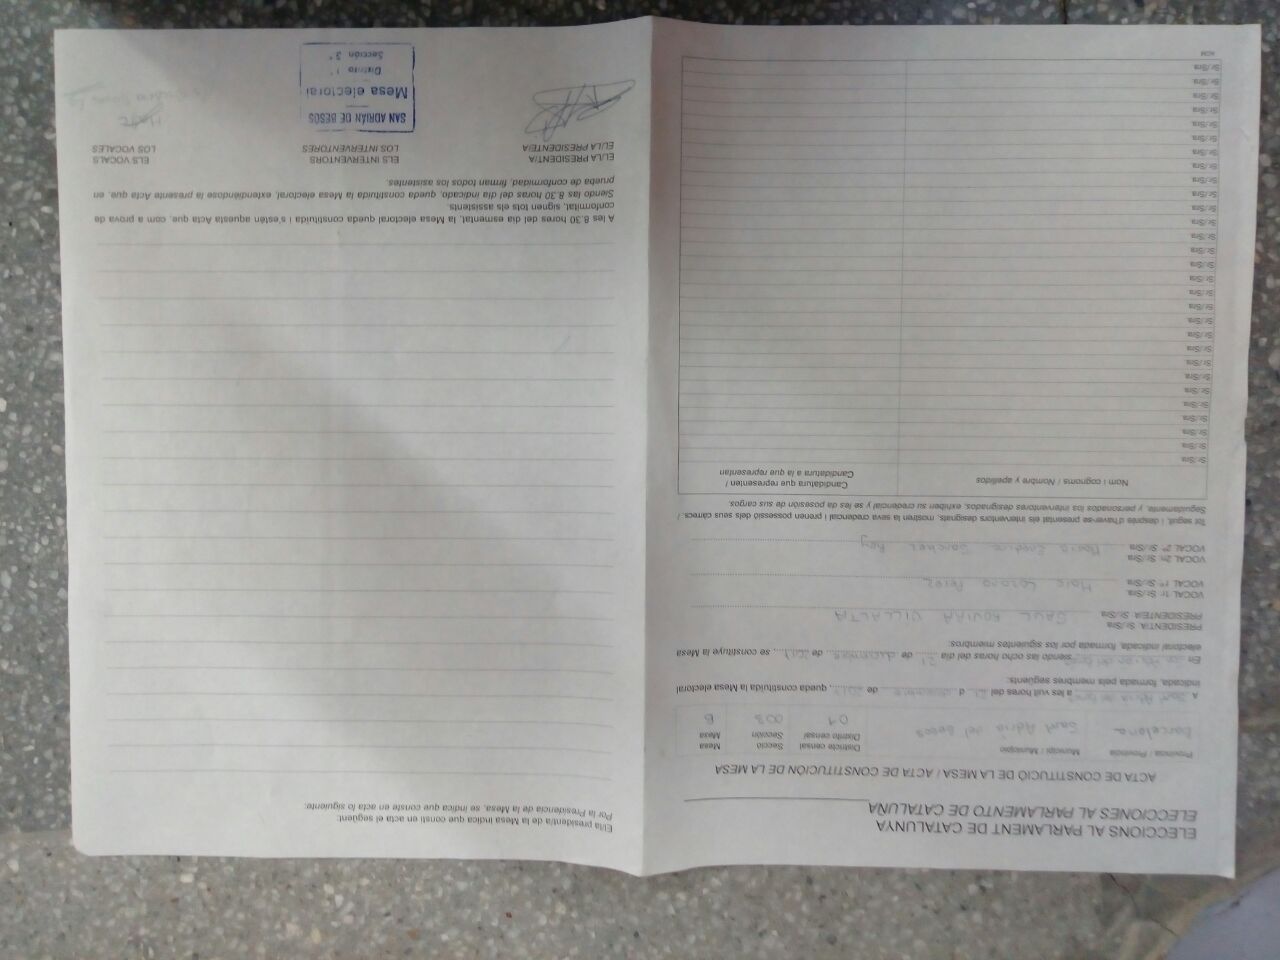 ELECCIONS AL PARLAMENT DE CATALUNYA
ELECCIONES AL PARLAMENTO DE CATALUÑA
ACTA DE CONSTITUCIÓ DE LA MESA / ACTA DE CONSTITUCIÓN DE LA MESA
Província / Provincia Municipi / Municipio Districte censal Secció Mesa
Distrito censal Sección Mesa
Barcelona Sant Adrià del Besos 01 003 B
A Sant Adrià del Besos a les vuit hores del 21 d desembre de 2017, queda constituïda la Mesa electoral
indicada, formada pels membres següents:
En siendo las ocho horas del día 21 de diciembre de 2017, se constituye la Mesa
electoral indicada, formada por los siguientes miembros:
PRESIDENT/A: Sr./Sra.
PRESIDENTE/A: Sr./Sra. SAUL ROVIRA VILLALTA
VOCAL 1r: Sr./Sra.
VOCAL 1º: Sr./Sra. Marc Lozano Pérez
VOCAL 2n: Sr./Sra.
VOCAL 2º: Sr./Sra. María Sanchez Rey
Tot seguit, i després d'haver-se presentat els interventors designats, mostren la seva credencial i prenen possessió dels seus càrrecs. /
Seguidamente, y personados los interventores designados, exhiben su credencial y se les da posesión de sus cargos.
Nom i cognoms / Nombre y apellidos Candidatura que representen /
Candidatura a la que representan
Sr./Sra.
Sr./Sra.
Sr./Sra.
Sr./Sra.
Sr./Sra.
Sr./Sra.
Sr./Sra.
Sr./Sra.
Sr./Sra.
Sr./Sra.
Sr./Sra.
Sr./Sra.
Sr./Sra.
Sr./Sra.
Sr./Sra.
Sr./Sra.
Sr./Sra.
Sr./Sra.
Sr./Sra.
Sr./Sra.
Sr./Sra.
Sr./Sra.
Sr./Sra.
Sr./Sra.
Sr./Sra.
Sr./Sra.
Sr./Sra.
Sr./Sra.
Sr./Sra.
El/la president/a de la Mesa indica que consti en acta el següent:
Por la Presidencia de la Mesa, se indica que conste en acta lo siguiente:
A les 8.30 hores del dia esmentat, la Mesa electoral queda constituïda i s'estén aquesta Acta que, com a prova de
conformitat, signen tots els assistents.
Siendo las 8.30 horas del día indicado, queda constituida la Mesa electoral, extendiéndose la presente Acta que, en
prueba de conformidad, firman todos los asistentes.
EL/LA PRESIDENT/A ELS INTERVENTORS ELS VOCALS
EL/LA PRESIDENTE/A LOS INTERVENTORES LOS VOCALES
SAN ADRIÁN DE BESOS
Mesa electoral
Distrito 1º
Sección 3ª